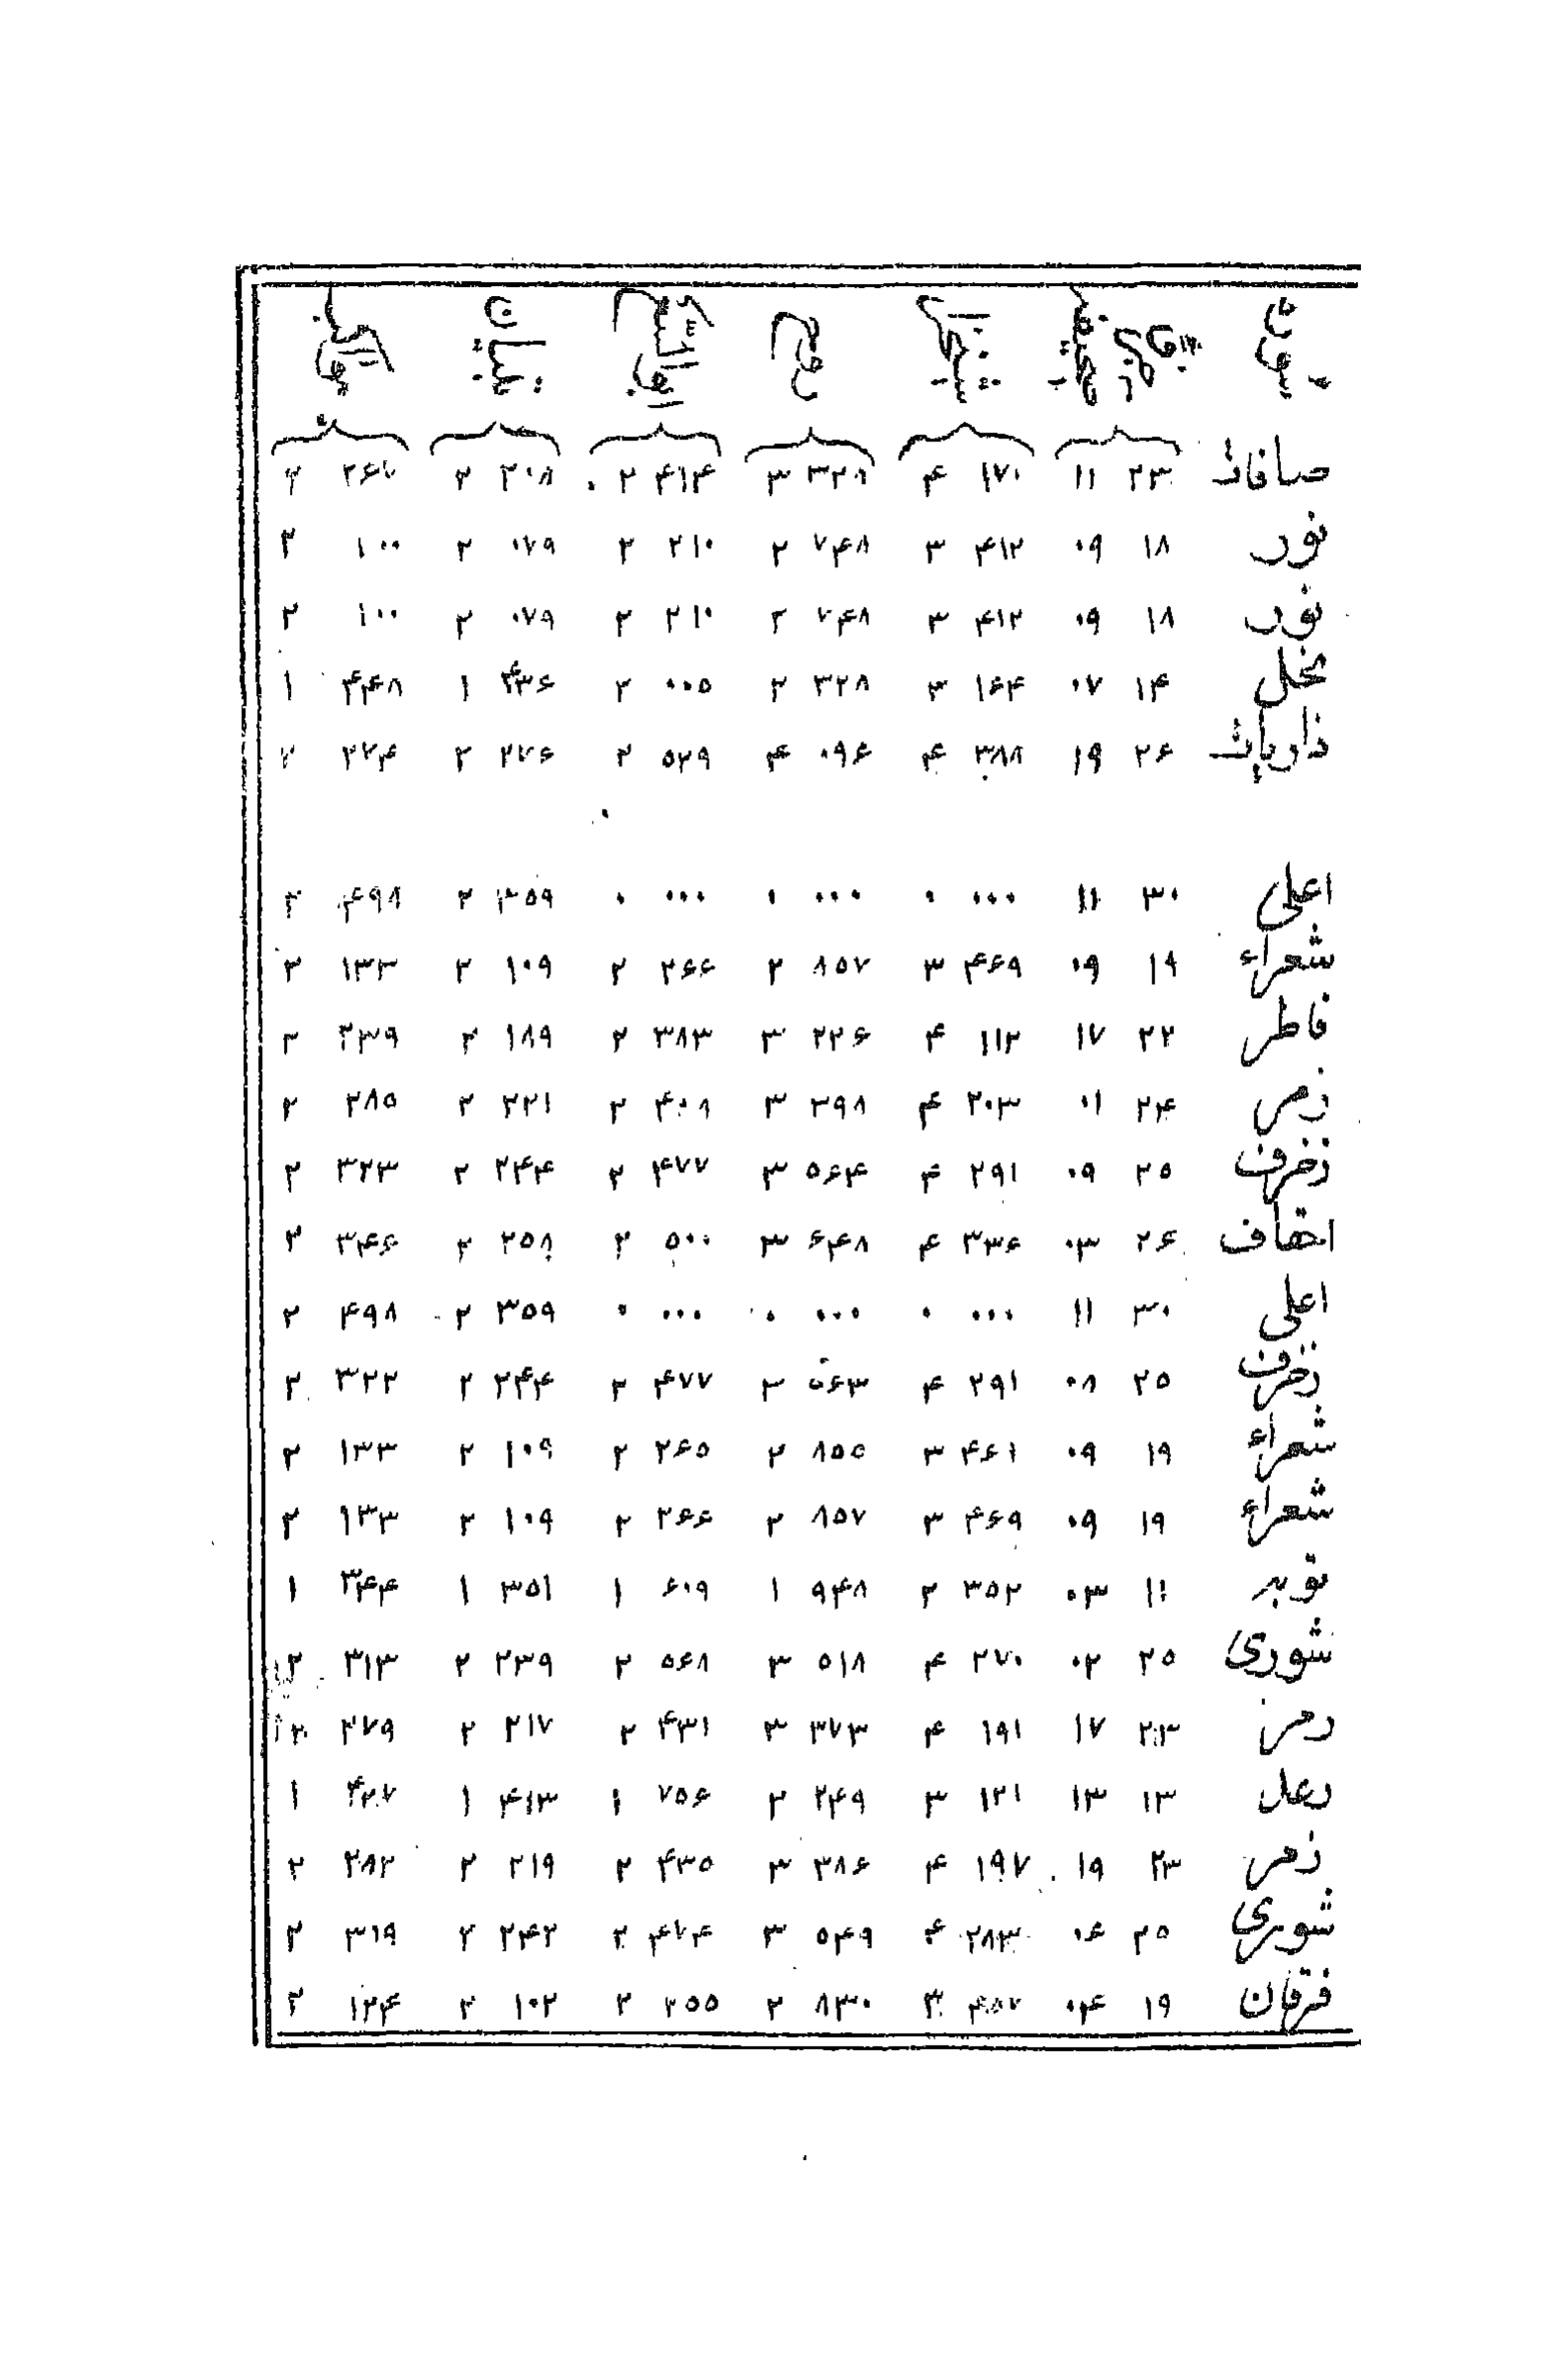 صافات ۲۳ ۱۱ ۱۷۰ ۴ ۳۲۸ ۳ ۴۱۴ ۲ ۲۰۸ ۲ ۲۶۷ ۲
نور ۱۸ ۰۹ ۴۱۲ ۳ ۷۴۸ ۲ ۲۱۰ ۲ ۰۷۹ ۲ ۱۰۰ ۲
نور ۱۸ ۰۹ ۴۱۲ ۳ ۷۴۸ ۲ ۲۱۰ ۲ ۰۷۹ ۲ ۱۰۰ ۲
نحل ۱۴ ۰۷ ۱۶۴ ۳ ۳۲۸ ۲ ۰۰۵ ۲ ۴۳۶ ۱ ۴۴۸ ۱
ذاریات ۲۶ ۱۹ ۳۸۸ ۴ ۰۹۶ ۴ ۵۲۹ ۲ ۲۷۶ ۲ ۲۷۴ ۲
اعلی ۳۰ ۱۱ ۰۰۰ ۰ ۰۰۰ ۰ ۰۰۰ ۰ ۳۵۹ ۲ ۴۹۸ ۲
شعراء ۱۹ ۰۹ ۴۶۹ ۳ ۸۵۷ ۲ ۲۶۶ ۲ ۱۰۹ ۲ ۱۳۳ ۲
فاطر ۲۲ ۱۷ ۱۱۲ ۴ ۲۲۶ ۳ ۳۸۳ ۲ ۱۸۹ ۲ ۲۳۹ ۲
زمر ۲۴ ۰۱ ۲۰۳ ۴ ۳۹۸ ۳ ۴۰۸ ۲ ۲۲۱ ۲ ۲۸۵ ۲
زخرف ۲۵ ۰۹ ۲۹۱ ۴ ۵۶۴ ۳ ۴۷۷ ۲ ۲۴۴ ۲ ۳۲۳ ۲
احقاف ۲۶ ۰۳ ۳۳۶ ۴ ۶۴۸ ۳ ۵۰۰ ۲ ۲۵۸ ۲ ۳۴۶ ۲
اعلی ۳۰ ۱۱ ۰۰۰ ۰ ۰۰۰ ۰ ۰۰۰ ۰ ۳۵۹ ۲ ۴۹۸ ۲
زخرف ۲۵ ۰۸ ۲۹۱ ۴ ۵۶۳ ۳ ۴۷۷ ۲ ۲۴۴ ۲ ۳۲۲ ۲
شعراء ۱۹ ۰۹ ۴۶۱ ۳ ۸۵۵ ۲ ۲۶۵ ۲ ۱۰۹ ۲ ۱۳۳ ۲
شعراء ۱۹ ۰۹ ۴۶۹ ۳ ۸۵۷ ۲ ۲۶۶ ۲ ۱۰۹ ۲ ۱۳۳ ۲
توبه ۱۱ ۰۳ ۳۵۲ ۲ ۹۴۸ ۱ ۶۰۹ ۱ ۳۵۱ ۱ ۳۴۴ ۱
شوری ۲۵ ۰۲ ۲۷۰ ۴ ۵۱۸ ۳ ۵۶۸ ۲ ۲۳۹ ۲ ۳۱۳ ۲
زمر ۲۳ ۱۷ ۱۹۱ ۴ ۳۷۳ ۳ ۴۳۱ ۲ ۲۱۷ ۲ ۲۷۹ ۲
رعد ۱۳ ۱۳ ۱۲۱ ۳ ۲۴۹ ۲ ۷۵۶ ۱ ۴۱۳ ۱ ۴۲۷ ۱
زمر ۲۳ ۱۹ ۱۹۷ ۴ ۳۸۶ ۳ ۴۳۵ ۲ ۲۱۹ ۲ ۲۸۲ ۲
شوری ۲۵ ۰۶ ۲۸۳ ۴ ۵۴۹ ۳ ۴۷۴ ۲ ۲۴۲ ۲ ۳۱۹ ۲
فرقان ۱۹ ۰۴ ۴۵۷ ۳ ۸۳۰ ۲ ۲۵۵ ۲ ۱۰۲ ۲ ۱۲۴ ۲